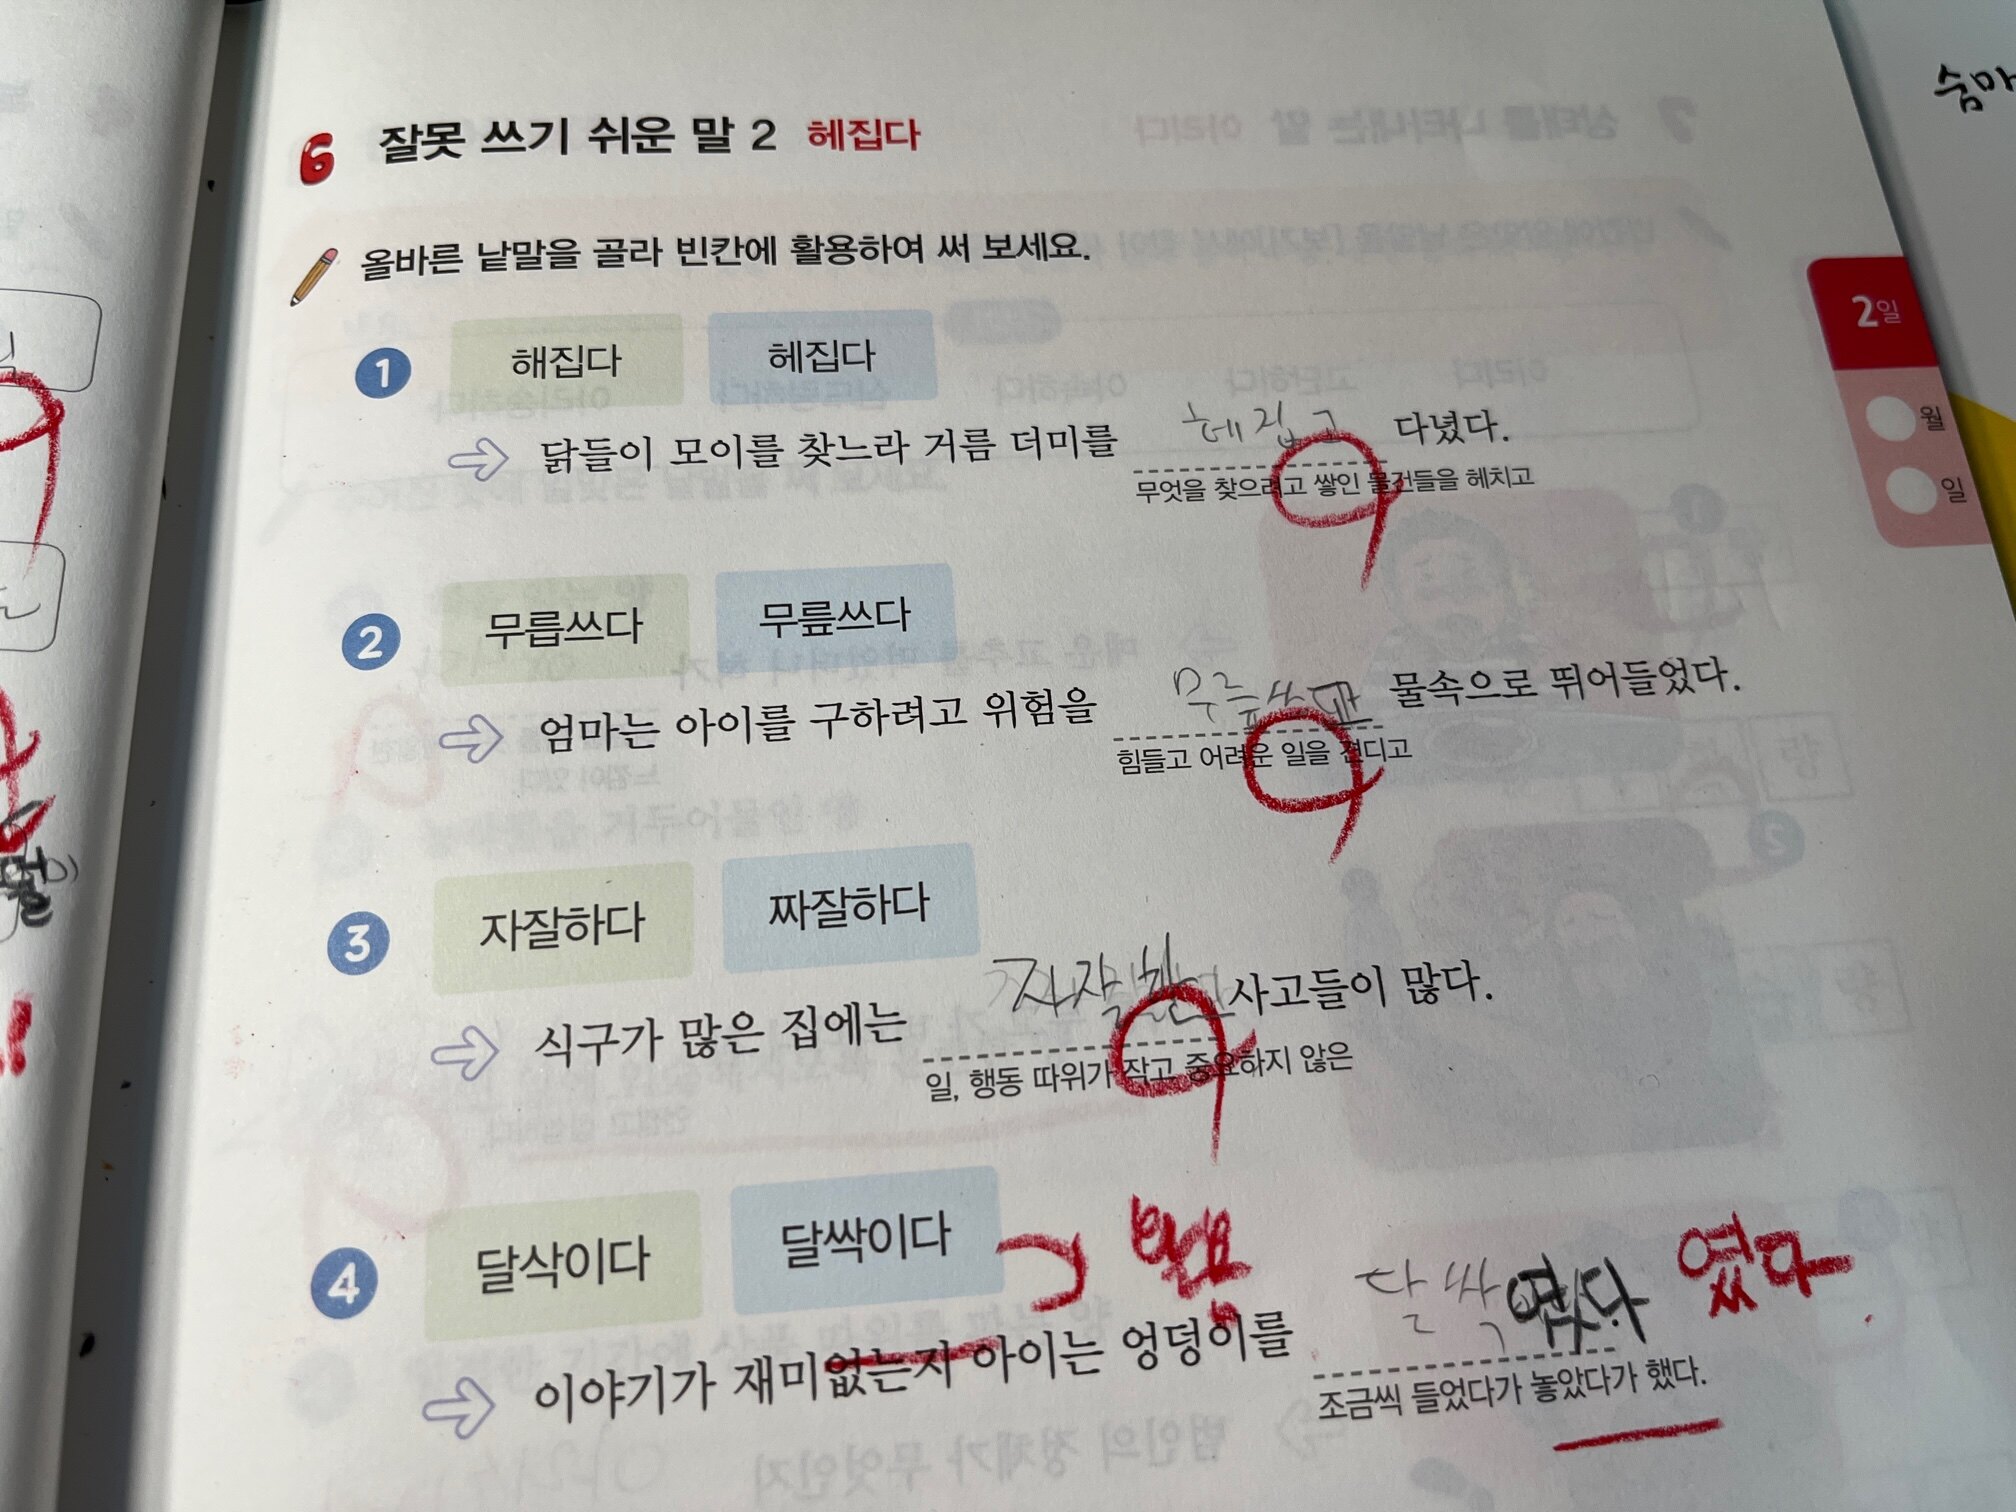 6 잘못 쓰기 쉬운 말 2 헤집다
올바른 낱말을 골라 빈칸에 활용하여 써 보세요.
1 해집다 헤집다
닭들이 모이를 찾느라 거름 더미를 헤집고 다녔다.
무엇을 찾으려고 쌓인 물건들을 헤치고
2 무릅쓰다 무릎쓰다
엄마는 아이를 구하려고 위험을 물속으로 뛰어들었다.
힘들고 어려운 일을 견디고
3 자잘하다 짜잘하다
식구가 많은 집에는 자잘한 사고들이 많다.
일, 행동 따위가 작고 중요하지 않은
4 달삭이다 달싹이다
이야기가 재미없는지 아이는 엉덩이를 달싹였다 였다
조금씩 들었다가 놓았다가 했다.
2일
월
일
숨마